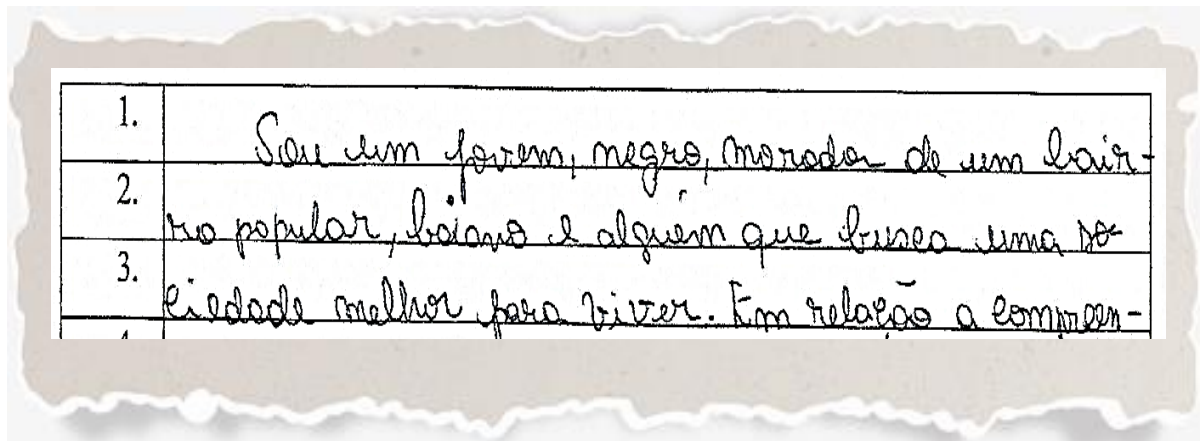 1. Sou um jovem, negro, morador de um bair-
2. ro popular, baiano e alguém que busca uma so-
3. ciedade melhor para viver. Em relação a compreen-